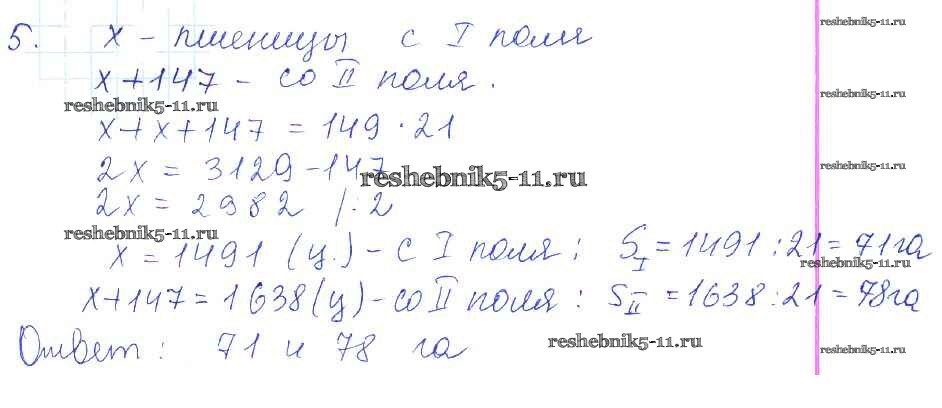 reshebnik5-11.ru
5. x - пшеницы с I поля
x+147 - со II поля.
reshebnik5-11.ru
reshebnik5-11.ru
x+x+147 = 149 · 21
2x = 3129-147
reshebnik5-11.ru
reshebnik5-11.ru
2x = 2982 /:2
reshebnik5-11.ru
x = 1491 (ц.) - с I поля; S I = 1491 : 21 = 71 га
reshebnik5-11.ru
x+147 = 1638 (ц) - со II поля; S II = 1638 : 21 = 78 га
Ответ: 71 и 78 га
reshebnik5-11.ru
reshebnik5-11.ru